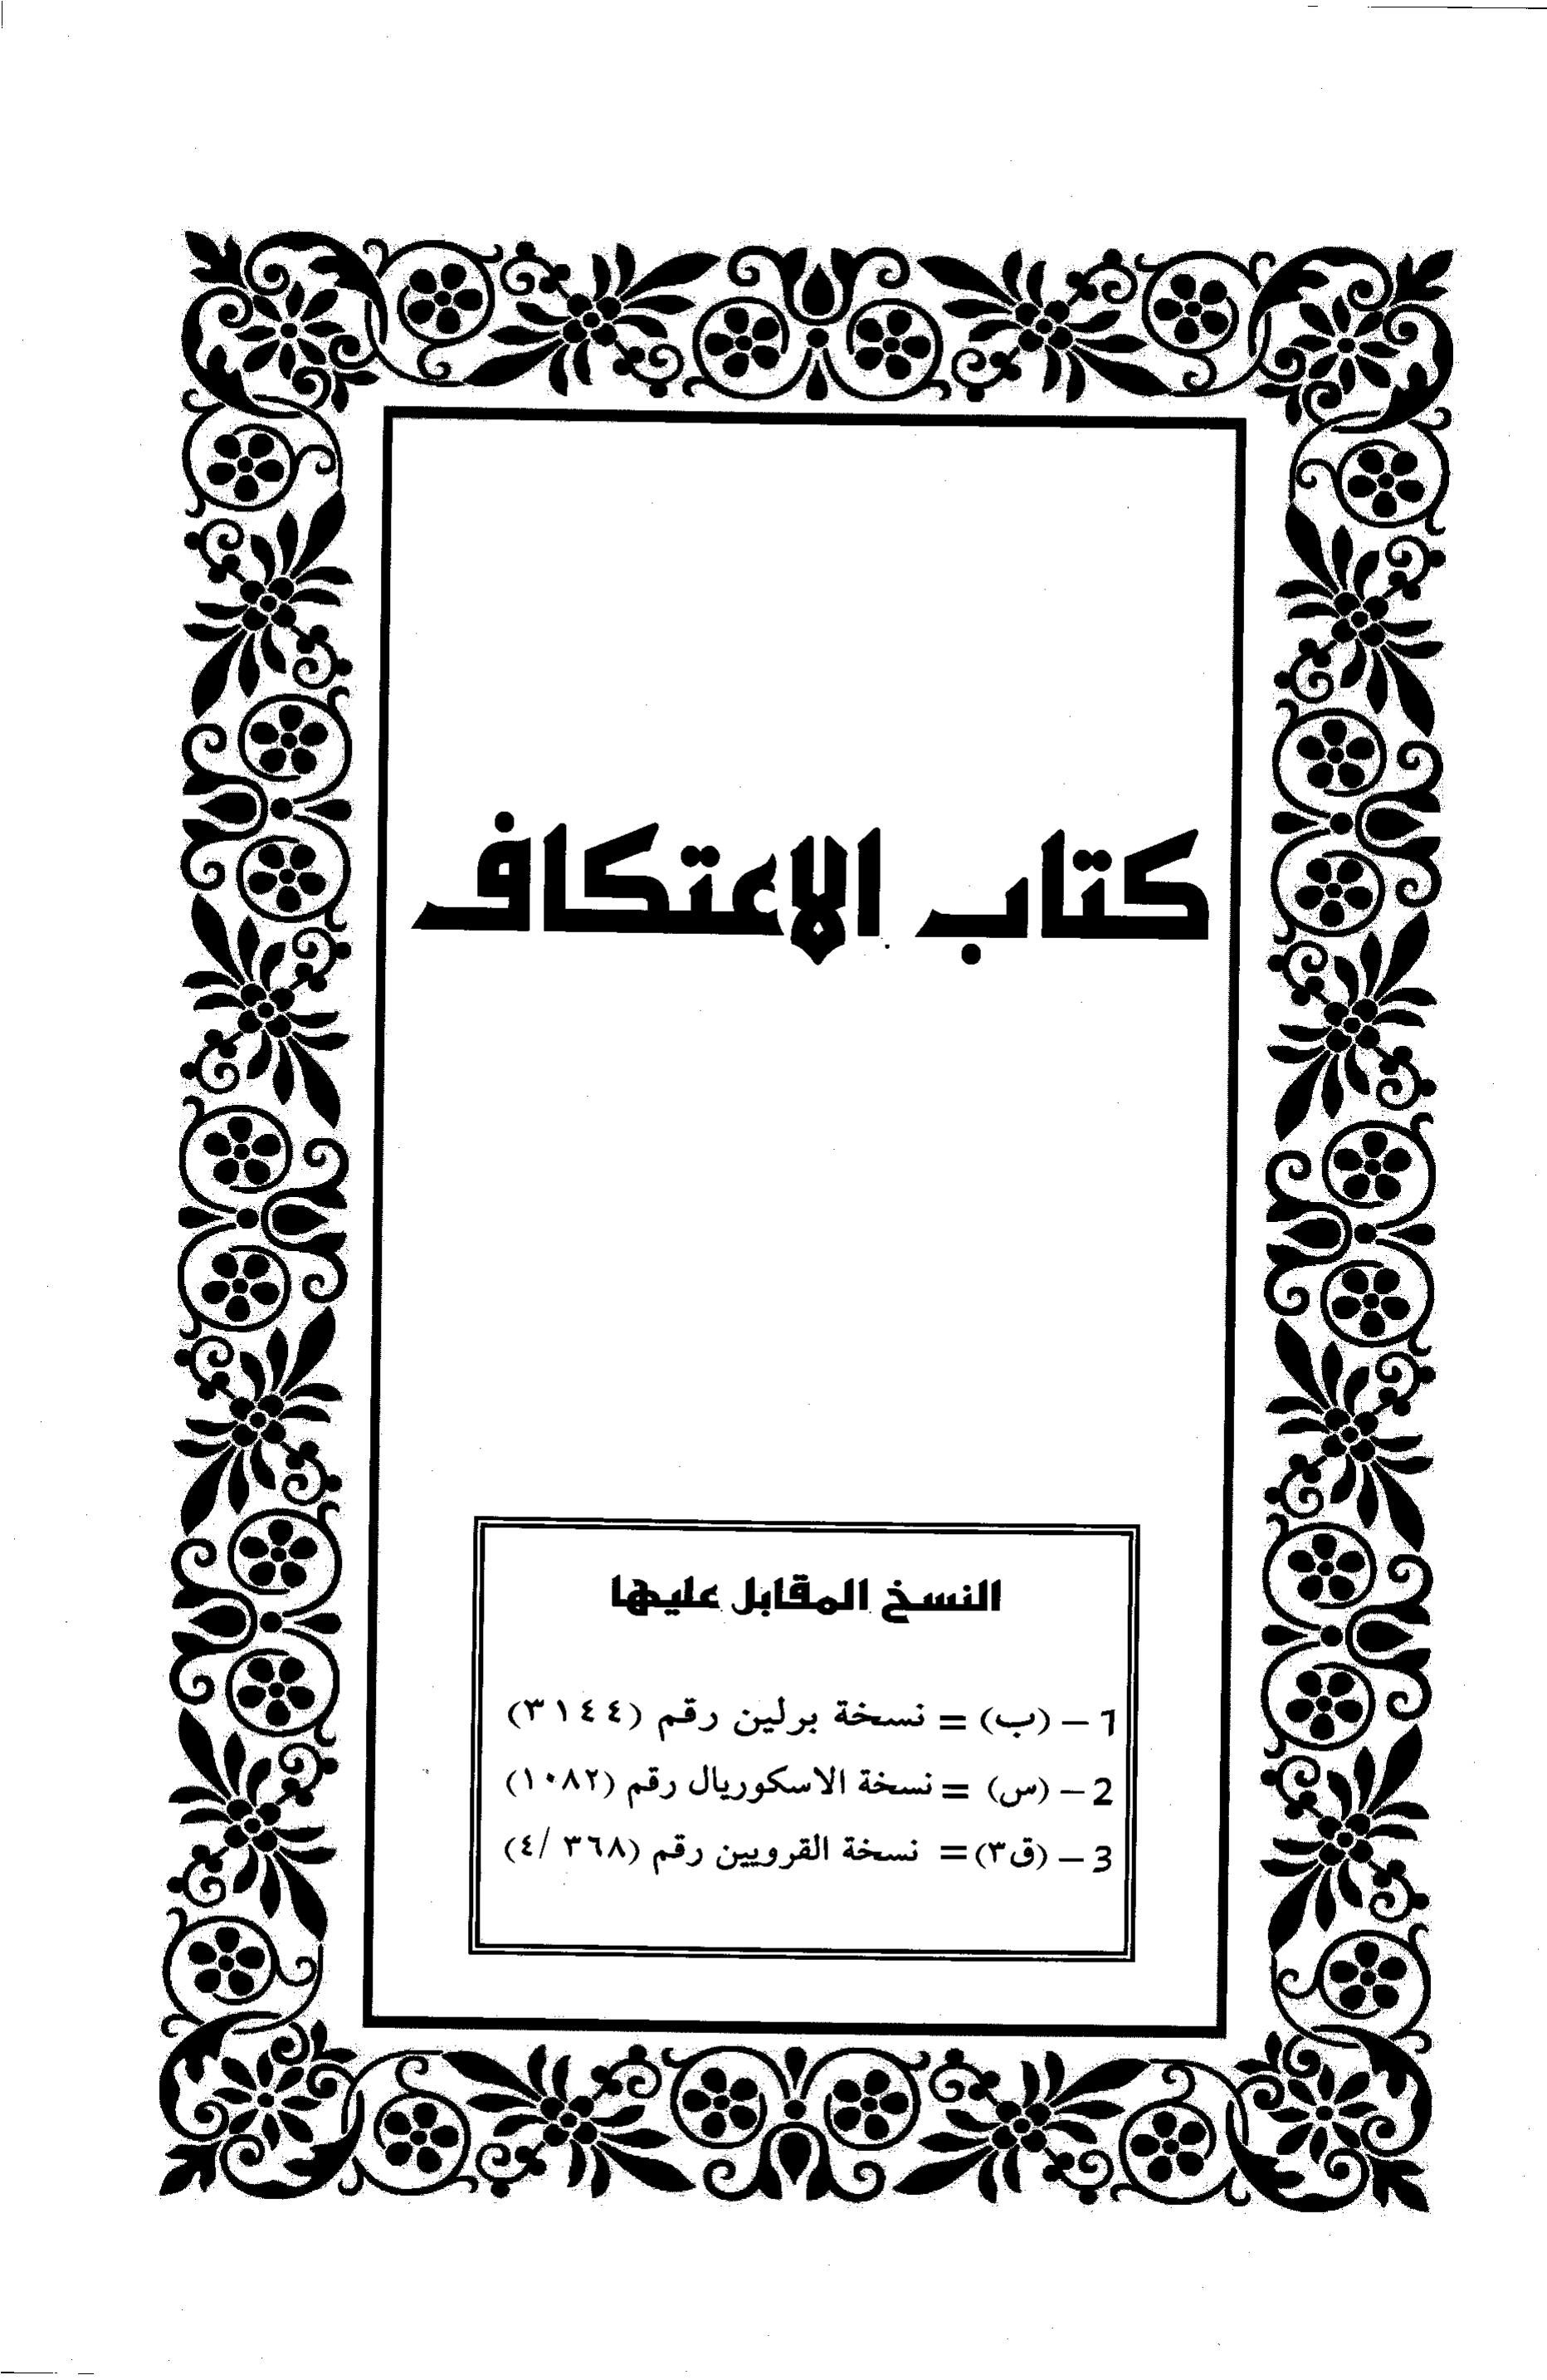 كتاب الاعتكاف
النسخ المقابل عليها
1 – (ب) = نسخة برلين رقم (٣١٤٤)
2 – (س) = نسخة الاسكوريال رقم (١٠٨٢)
3 – (ق٣) = نسخة القرويين رقم (٣٦٨ /٤)